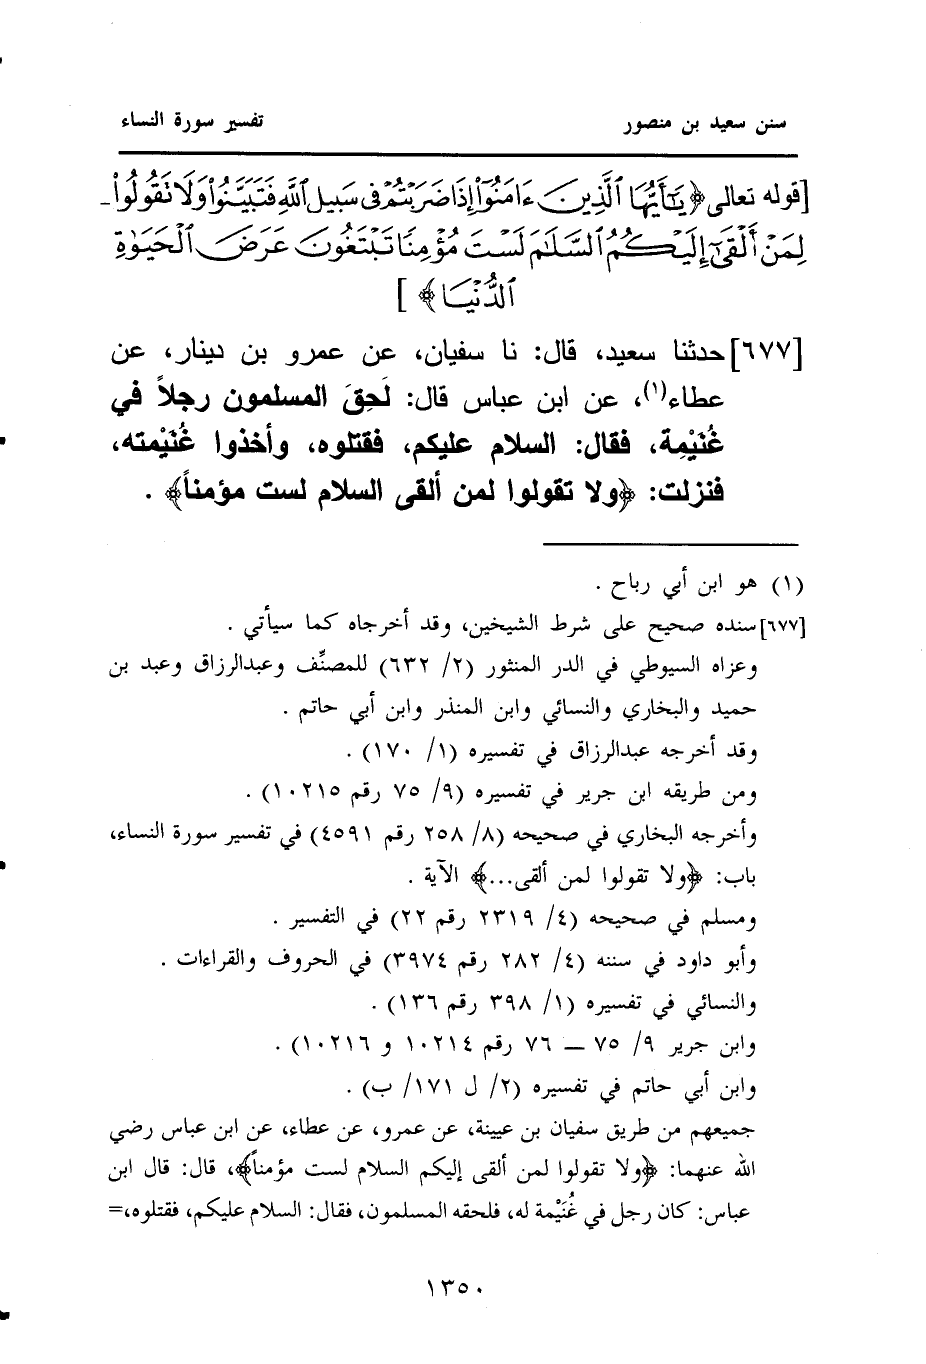 سنن سعيد بن منصور تفسير سورة النساء
[قوله تعالى ﴿يَٰٓأَيُّهَا ٱلَّذِينَ ءَامَنُوٓا۟ إِذَا ضَرَبۡتُمۡ فِى سَبِيلِ ٱللَّهِ فَتَبَيَّنُوا۟ وَلَا تَقُولُوا۟
لِمَنۡ أَلۡقَىٰٓ إِلَيۡكُمُ ٱلسَّلَٰمَ لَسۡتَ مُؤۡمِنٗا تَبۡتَغُونَ عَرَضَ ٱلۡحَيَوٰةِ
ٱلدُّنۡيَا﴾ ]
[٦٧٧] حدثنا سعيد، قال: نا سفيان، عن عمرو بن دينار، عن
عطاء(١)، عن ابن عباس قال: لَحِقَ المسلمون رجلاً في
غُنَيْمِة، فقال: السلام عليكم، فقتلوه، وأخذوا غُنَيْمته،
فنزلت: ﴿ولا تقولوا لمن ألقى السلام لست مؤمناً﴾ .
(١) هو ابن أبي رباح .
[٦٧٧] سنده صحيح على شرط الشيخين، وقد أخرجاه كما سيأتي .
وعزاه السيوطي في الدر المنثور (٢/ ٦٣٢) للمصنِّف وعبدالرزاق وعبد بن
حميد والبخاري والنسائي وابن المنذر وابن أبي حاتم .
وقد أخرجه عبدالرزاق في تفسيره (١/ ١٧٠) .
ومن طريقه ابن جرير في تفسيره (٩/ ٧٥ رقم ١٠٢١٥) .
وأخرجه البخاري في صحيحه (٨/ ٢٥٨ رقم ٤٥٩١) في تفسير سورة النساء،
باب: ﴿ولا تقولوا لمن ألقى...﴾ الآية .
ومسلم في صحيحه (٤/ ٢٣١٩ رقم ٢٢) في التفسير .
وأبو داود في سننه (٤/ ٢٨٢ رقم ٣٩٧٤) في الحروف والقراءات .
والنسائي في تفسيره (١/ ٣٩٨ رقم ١٣٦) .
وابن جرير ٩/ ٧٥ ــ ٧٦ رقم ١٠٢١٤ و ١٠٢١٦) .
وابن أبي حاتم في تفسيره (٢/ ل ١٧١/ ب) .
جميعهم من طريق سفيان بن عيينة، عن عمرو، عن عطاء، عن ابن عباس رضي
الله عنهما: ﴿ولا تقولوا لمن ألقى إليكم السلام لست مؤمناً﴾، قال: قال ابن
عباس: كان رجل في غُنَيْمة له، فلحقه المسلمون، فقال: السلام عليكم، فقتلوه،=
١٣٥٠